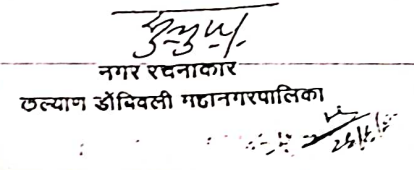 नगर रचनाकार
कल्याण डोंबिवली महानगरपालिका